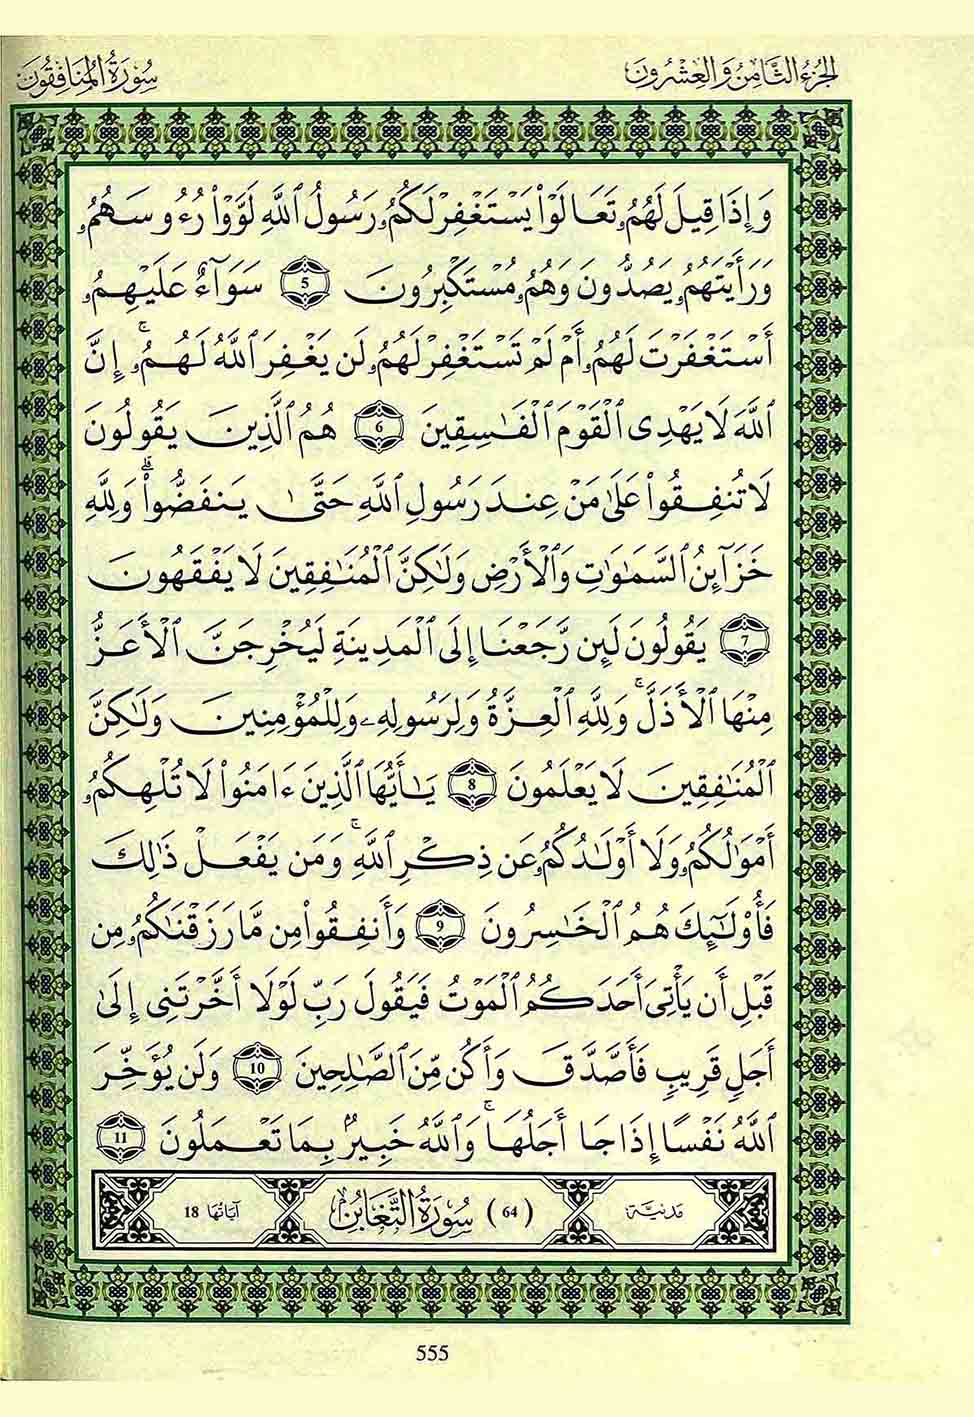 الجُزْءُ الثَّامِنُ وَالعِشْرُونَ
سُورَةُ المُنَافِقُونَ
وَإِذَا قِيلَ لَهُمُۥ تَعَالَوْا۟ يَسْتَغْفِرْ لَكُمُۥ رَسُولُ ٱللَّهِ لَوَّوْا۟ رُءُوسَهُمُۥ
وَرَأَيْتَهُمُۥ يَصُدُّونَ وَهُمُۥ مُسْتَكْبِرُونَ 5 سَوَآءٌ عَلَيْهِمُۥ
أَسْتَغْفَرْتَ لَهُمُۥ أَمْ لَمْ تَسْتَغْفِرْ لَهُمُۥ لَن يَغْفِرَ ٱللَّهُ لَهُمُۥۚ إِنَّ
ٱللَّهَ لَا يَهْدِى ٱلْقَوْمَ ٱلْفَـٰسِقِينَ 6 هُمُ ٱلَّذِينَ يَقُولُونَ
لَا تُنفِقُوا۟ عَلَىٰ مَنْ عِندَ رَسُولِ ٱللَّهِ حَتَّىٰ يَنفَضُّوا۟ۗ وَلِلَّهِ
خَزَآئِنُ ٱلسَّمَـٰوَٰتِ وَٱلْأَرْضِ وَلَـٰكِنَّ ٱلْمُنَـٰفِقِينَ لَا يَفْقَهُونَ
7 يَقُولُونَ لَئِن رَّجَعْنَا إِلَى ٱلْمَدِينَةِ لَيُخْرِجَنَّ ٱلْأَعَزُّ
مِنْهَا ٱلْأَذَلَّۚ وَلِلَّهِ ٱلْعِزَّةُ وَلِرَسُولِهِۦ وَلِلْمُؤْمِنِينَ وَلَـٰكِنَّ
ٱلْمُنَـٰفِقِينَ لَا يَعْلَمُونَ 8 يَـٰأَيُّهَا ٱلَّذِينَ ءَامَنُوا۟ لَا تُلْهِكُمُۥ
أَمْوَٰلُكُمُۥ وَلَا أَوْلَـٰدُكُمُۥ عَن ذِكْرِ ٱللَّهِۚ وَمَن يَفْعَلْ ذَٰلِكَ
فَأُو۟لَـٰٓئِكَ هُمُ ٱلْخَـٰسِرُونَ 9 وَأَنفِقُوا۟ مِن مَّا رَزَقْنَـٰكُمُۥ مِن
قَبْلِ أَن يَأْتِىَ أَحَدَكُمُ ٱلْمَوْتُ فَيَقُولَ رَبِّ لَوْلَا أَخَّرْتَنِى إِلَىٰ
أَجَلٍ قَرِيبٍ فَأَصَّدَّقَ وَأَكُن مِّنَ ٱلصَّـٰلِحِينَ 10 وَلَن يُؤَخِّرَ
ٱللَّهُ نَفْسًا إِذَا جَا أَجَلُهَاۚ وَٱللَّهُ خَبِيرٌۢ بِمَا تَعْمَلُونَ 11
مَدَنِيَّة (64) سُورَةُ التَّغَابُنِ آيَاتُهَا 18
555